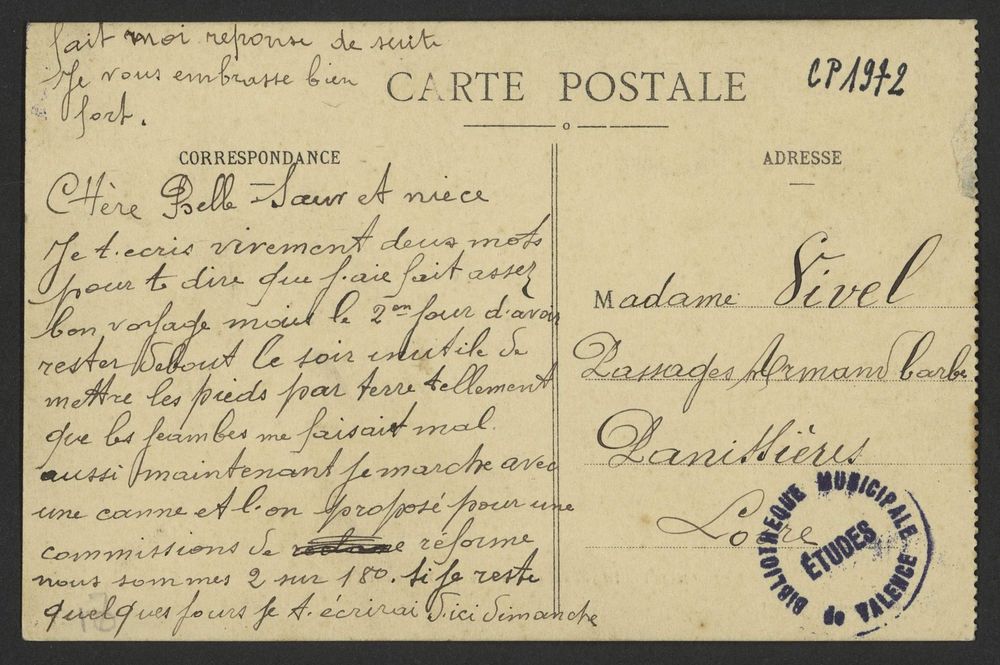 fait moi reponse de suite
Je vous embrasse bien
fort.
CARTE POSTALE
CP1972
CORRESPONDANCE
ADRESSE
CHère Belle-Sœur et niece
Je t'ecris vivement deux mots
pour te dire que j'aie fait assez
bon voyage mais le 2en jour d'avoir
rester debout le soir inutile de
mettre les pieds par terre tellement
que les jeambes me faisait mal.
aussi maintenant je marche avec
une canne et l'on proposé pour une
commissions de réforme
nous sommes 2 sur 180. si je reste
quelques jours je t'écrirai d'ici dimanche
Madame Vivel
Passages Armand barbe
Panissières
Loire
BIBLIOTHEQUE MUNICIPALE
ÉTUDES
de VALENCE